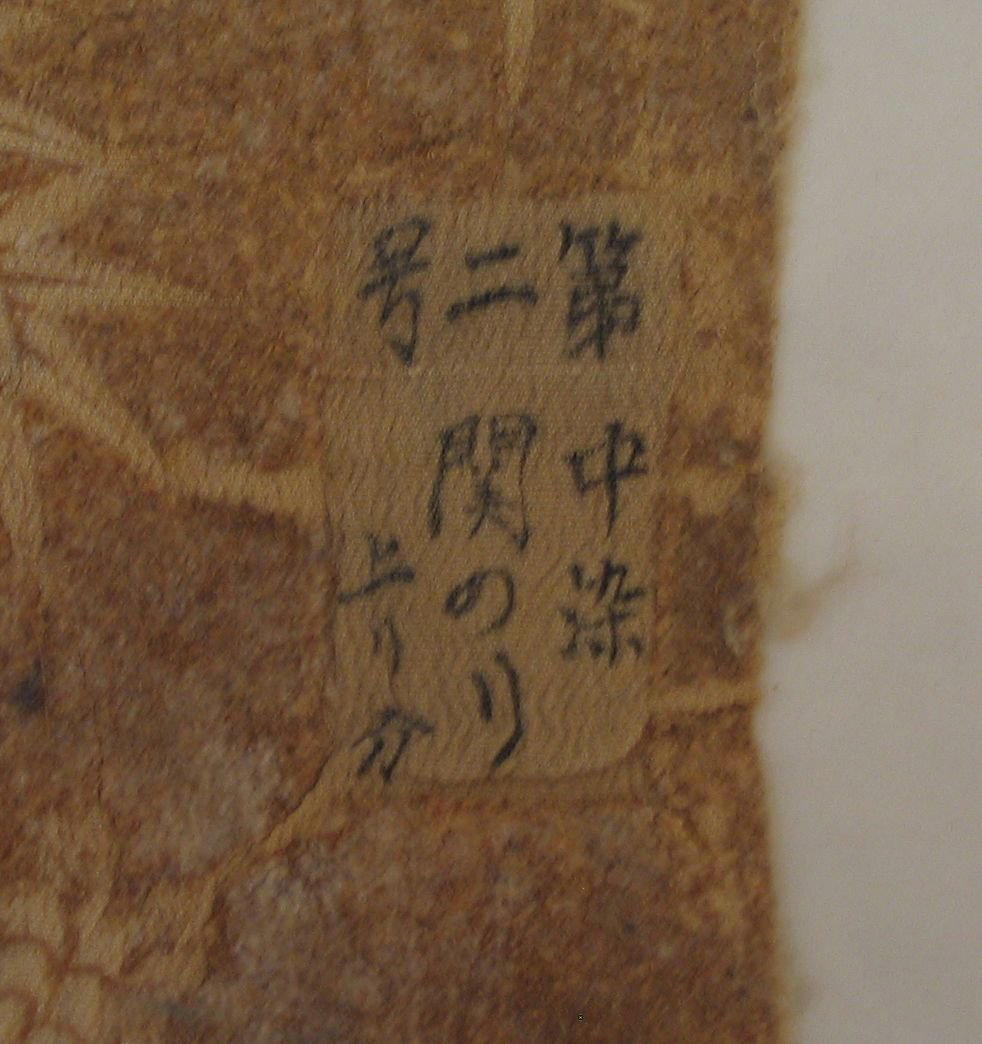 第二号
中染
関のり
上り分